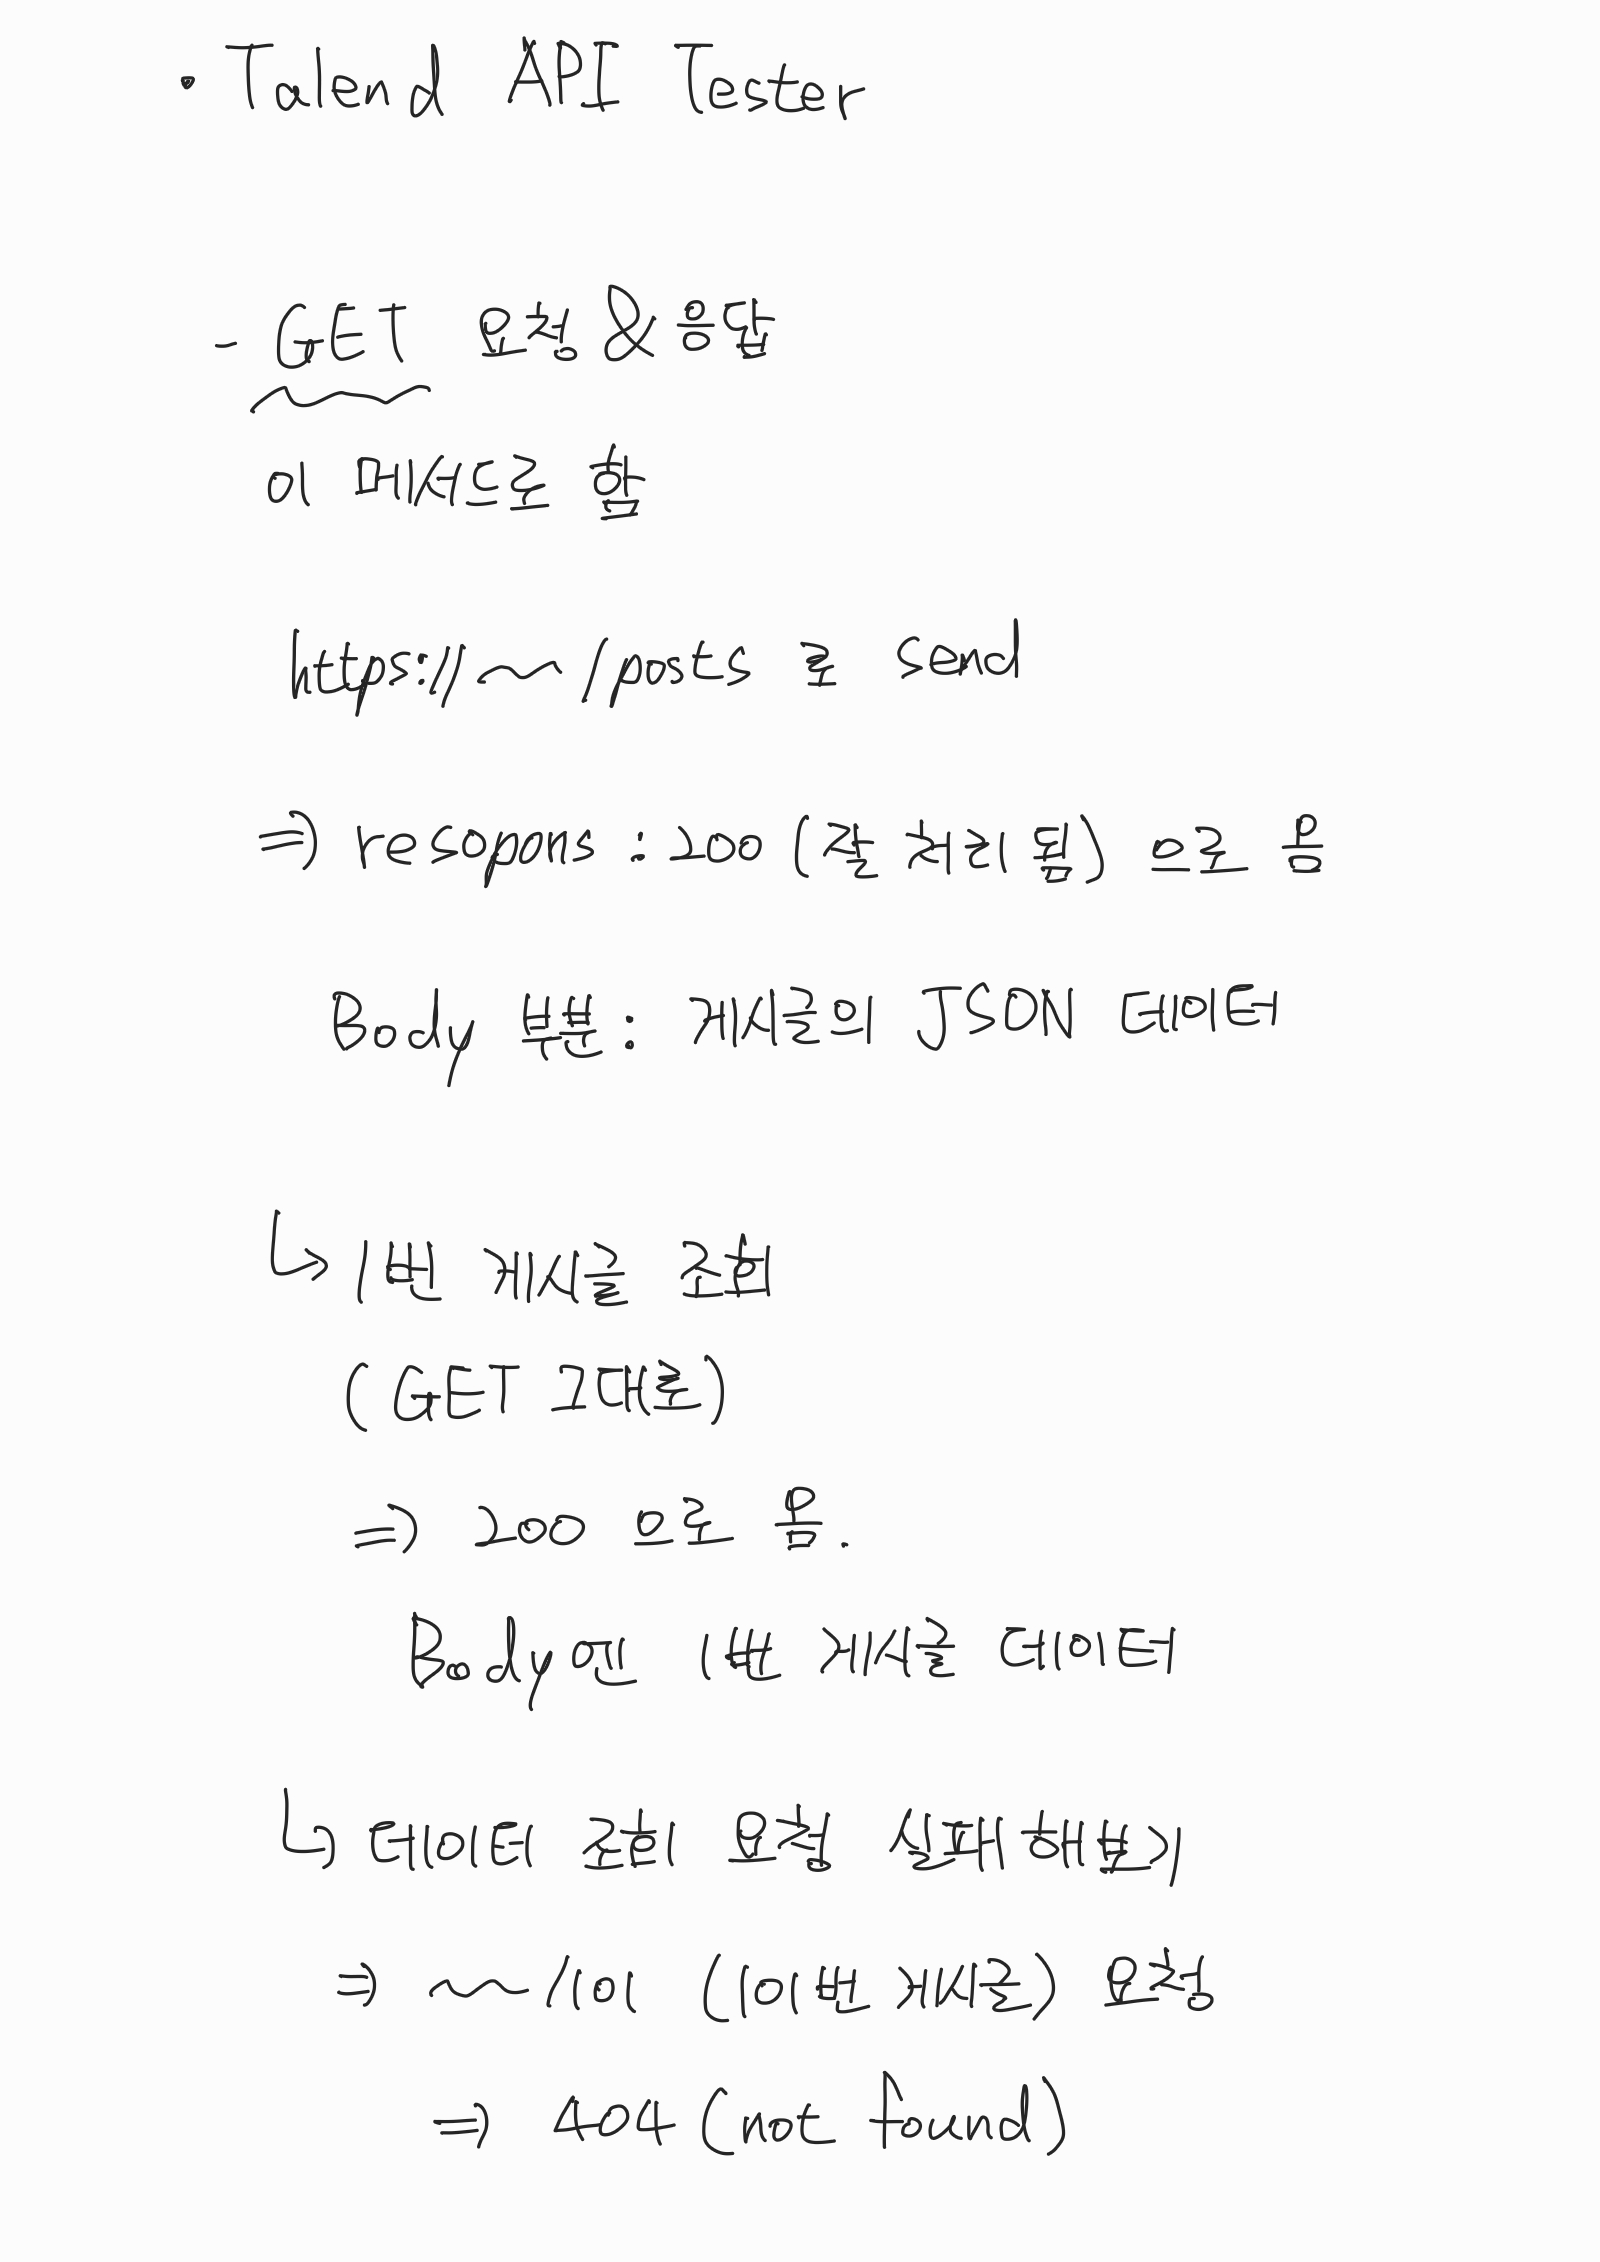 · Talend API Tester
- GET 요청 & 응답
이 메서드로 함
https://~/posts 로 send
⇒ resopons : 200 (잘 처리 됨) 으로 옴
Body 부분 : 게시글의 JSON 데이터
↳ 1번 게시글 조회
(GET 그대로)
⇒ 200 으로 옴.
Body엔 1번 게시글 데이터
↳ 데이터 조회 요청 실패해보기
⇒ ~/101 (101번 게시글) 요청
⇒ 404 (not found)